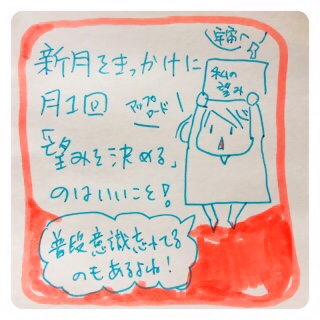 新月をきっかけに
月1回
アップロード
「望みを決める」
のはいいこと!
宇宙へ
私の
望み
普段意識忘れてる
のもあるよね!